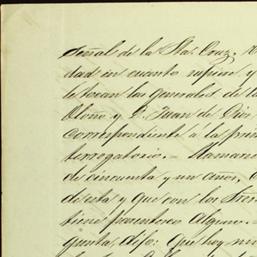 señal de la Sta. Cruz.
dad en cuanto supiere y
le tocan las generales de la
Oloño y D. Juan de Dios
correspondiente a la prim
terrogatorio. - Llamarse
de cincuenta y un años,
de esta y que con los Señores
tiene parentesco alguno. -
gunta, dijo: Que hoy